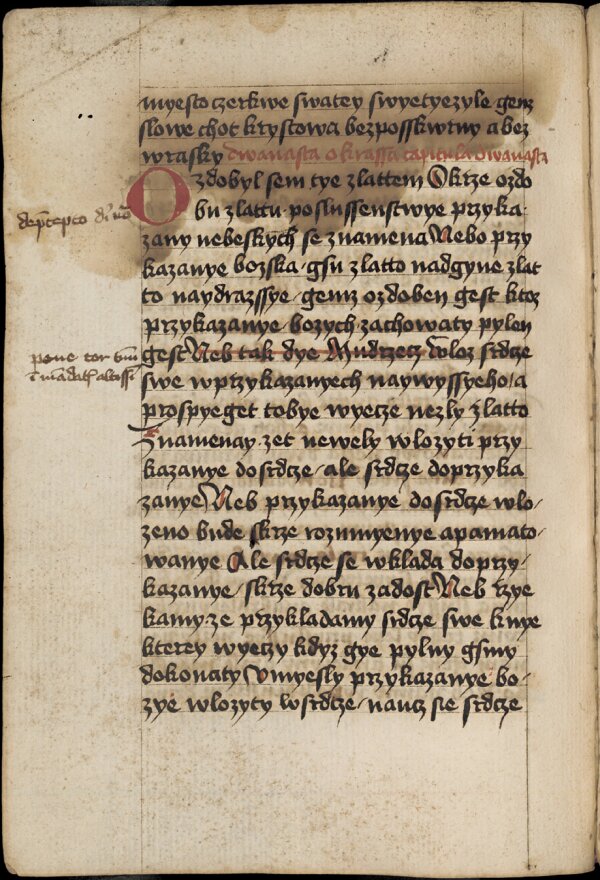 myesto czerkwe swatey swyetyezyle genz
slowe chot krystowa bezposskwrny abez
wrasky dwanasta okrassa capitula dwanasta
Ozdobyl sem tye zlattem Okrze ozdo
bu zlattu poslussenstwye przyka
zany nebeskych se znamena Nebo przy
kazanye bozska gsu zlatto nadgyne zlat
to naydrazssye genz ozdoben gest ktoz
przykazanye bozych zachowaty pylen
gest Neb tak dye Mudrzecz Wloz srdcze
swe wprzykazanyech naywyssyeho a
prospyeget tobye wyecze nezly zlatto
Znamenay zet newely wlozyti przy
kazanye dosrdcze ale srdcze doprzyka
zanye Neb przykazanye dosrdcze wlo
zeno bude skrze rozumyenye apamato
wanye Ale srdcze se wklada doprzy
kazanye skrze dobru zadost Neb rzye
kamy ze przykladamy srdcze swe knye
kterey wyeczy kdyz gye pylny gsmy
dokonaty Umyesly przykazanye bo
zye wlozyty wsrdcze naucz se srdcze
pone cor tuum